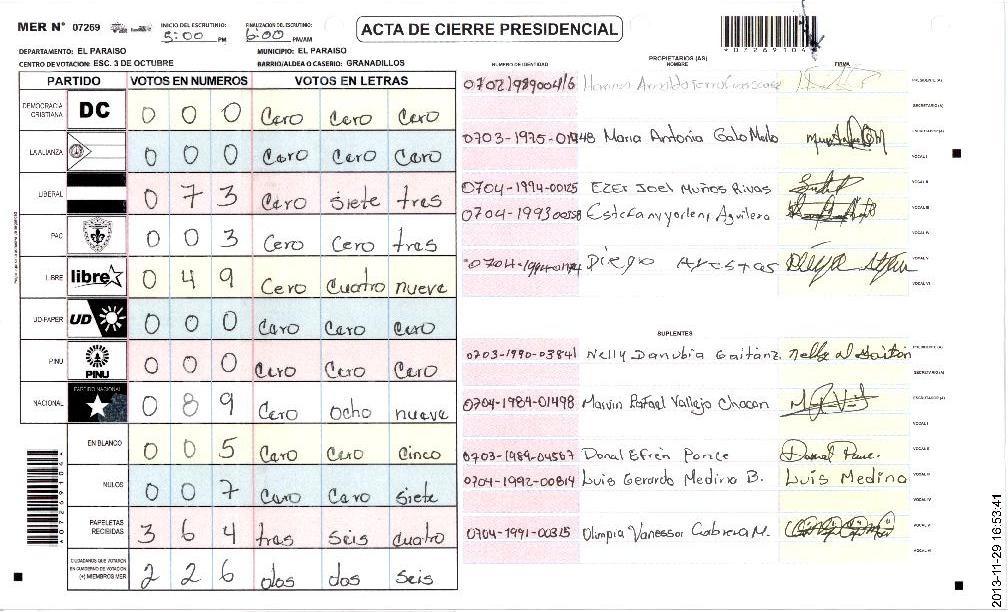 MER N° 07269
INICIO DEL ESCRUTINIO: 5:00 PM
FINALIZACION DEL ESCRUTINIO: 6:00 PM/AM
ACTA DE CIERRE PRESIDENCIAL
07269104
DEPARTAMENTO: EL PARAISO
MUNICIPIO: EL PARAISO
CENTRO DE VOTACION: ESC. 3 DE OCTUBRE
BARRIO/ALDEA O CASERIO: GRANADILLOS
PARTIDO VOTOS EN NUMEROS VOTOS EN LETRAS
DEMOCRACIA CRISTIANA DC 0 0 0 Cero Cero Cero
LA ALIANZA 0 0 0 Cero Cero Cero
LIBERAL 0 7 3 Cero siete tres
PAC 0 0 3 Cero Cero tres
LIBRE libre 0 4 9 Cero Cuatro nueve
UD-FAPER UD 0 0 0 Cero Cero Cero
PINU PINU 0 0 0 Cero Cero Cero
NACIONAL PARTIDO NACIONAL 0 8 9 Cero ocho nueve
EN BLANCO 0 0 5 Cero Cero Cinco
NULOS 0 0 7 Cero Cero siete
PAPELETAS RECIBIDAS 3 6 4 tres seis cuatro
CIUDADANOS QUE VOTARON EN CUADERNO DE VOTACION (+) MIEMBROS MER 2 2 6 dos dos seis
NUMERO DE IDENTIDAD
PROPIETARIOS (AS)
NOMBRE
FIRMA
PRESIDENTE (A)
SECRETARIO (A)
0703-1975-01448 Maria Antonia Galo Mello ESCRUTADOR (A)
VOCAL I
0704-1994-00125 EZER Joel Muños Rivas VOCAL II
0704-1993 Estefany yorleny Aguilera VOCAL III
VOCAL IV
Diego VOCAL V
VOCAL VI
SUPLENTES
0703-1990-03841 Nelly Danubia Gaitán PRESIDENTE (A)
SECRETARIO (A)
0704-1984-01498 Marvin Rafael Vallejo Chacon ESCRUTADOR (A)
VOCAL I
0703-1989-04567 Donal Efrén Ponce VOCAL II
0704-1992-00814 Luis Gerardo Medina B. Luis Medina VOCAL III
VOCAL IV
0704-1991-00315 Olimpia Vanessa Cabrera M. VOCAL V
VOCAL VI
2013-11-29 16:53:41